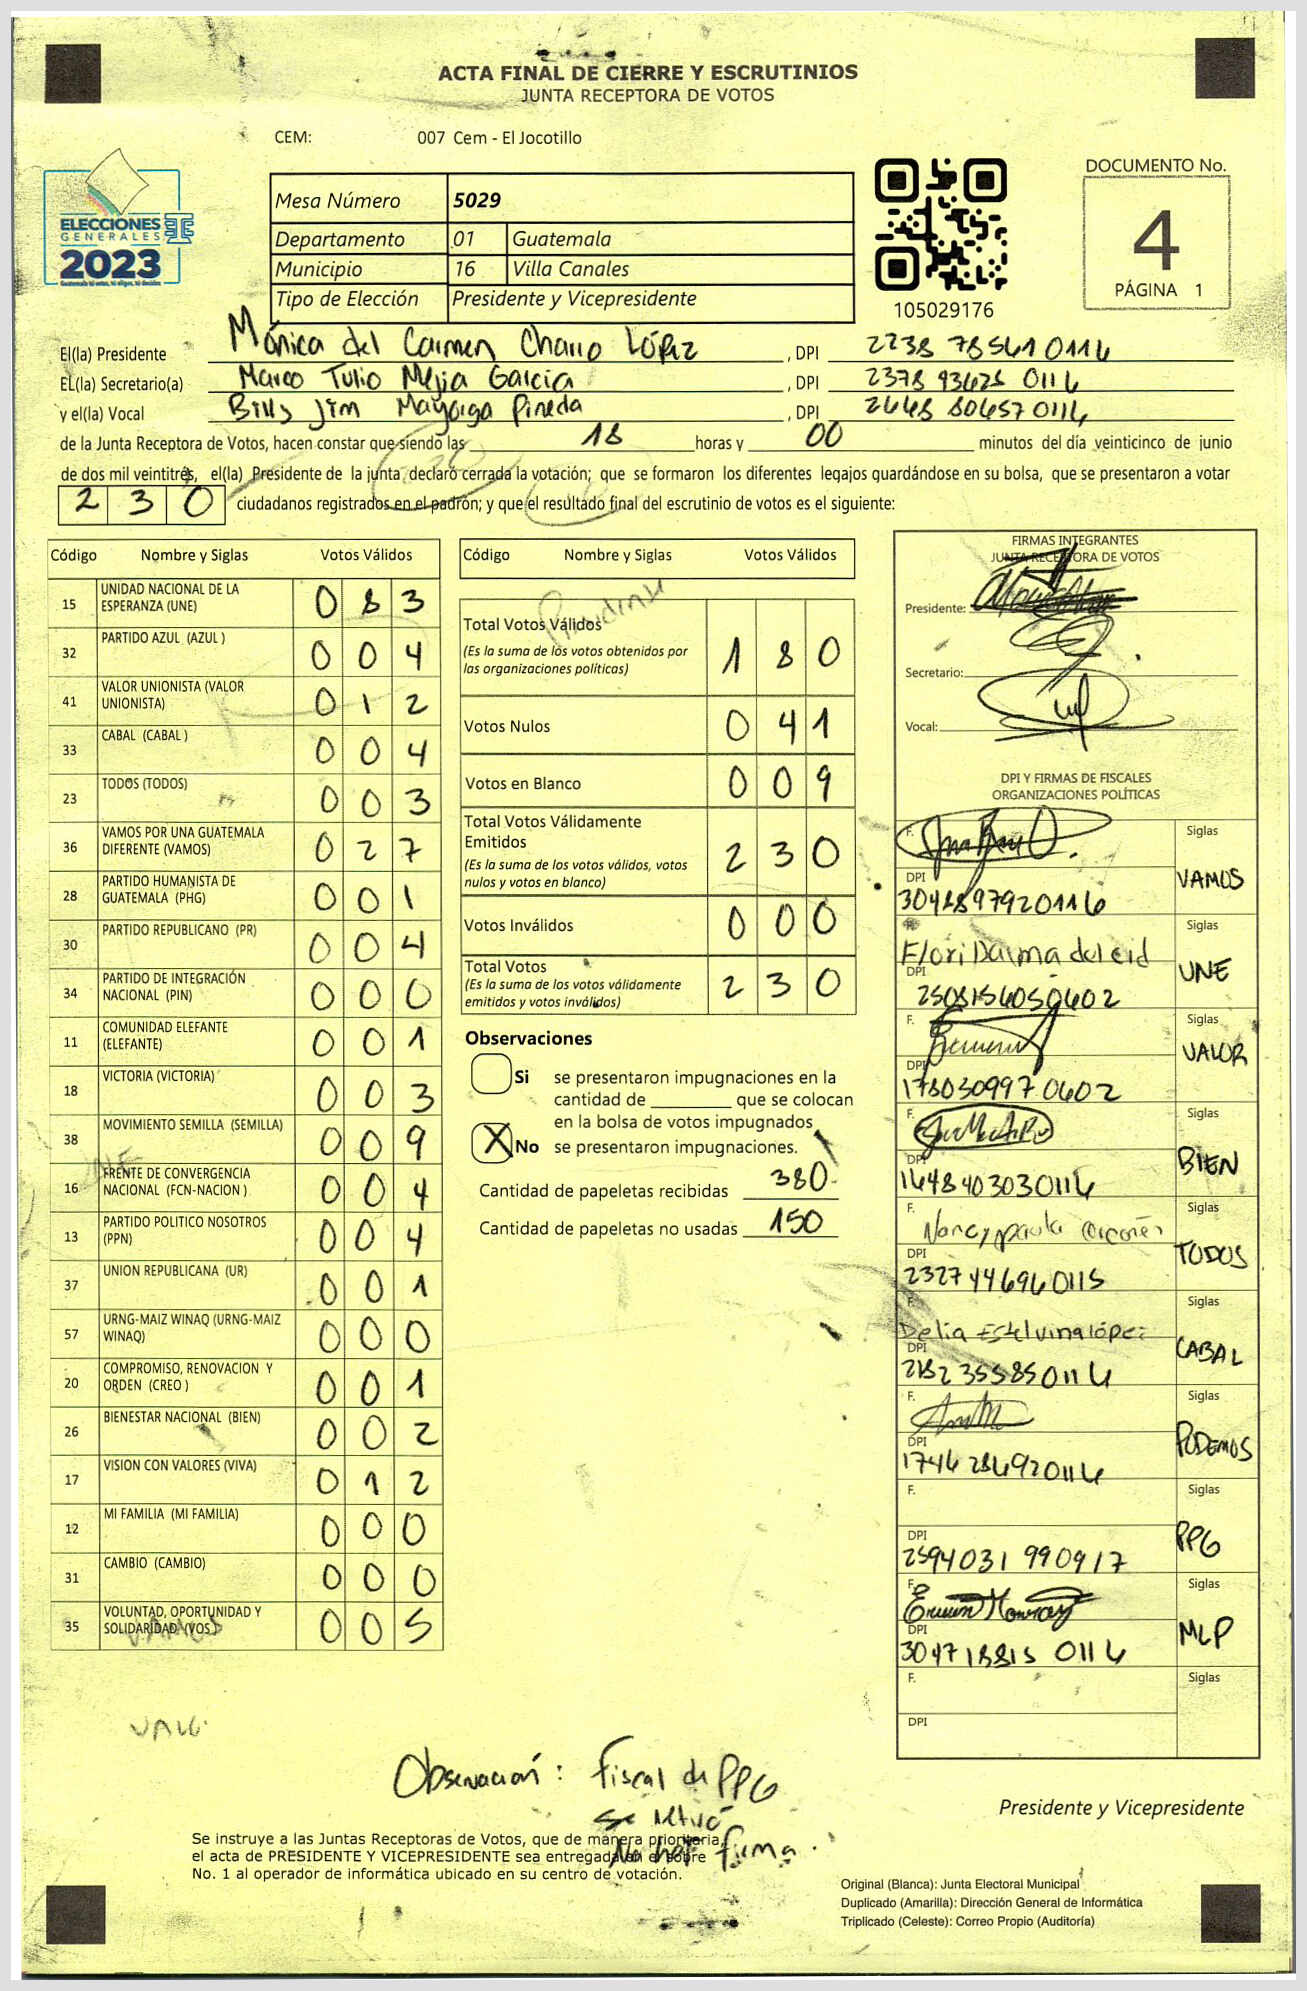 ACTA FINAL DE CIERRE Y ESCRUTINIOS
JUNTA RECEPTORA DE VOTOS
CEM: 007 Cem - El Jocotillo
ELECCIONES
GENERALES
2023
Mesa Número 5029
Departamento 01 Guatemala
Municipio 16 Villa Canales
Tipo de Elección Presidente y Vicepresidente
105029176
DOCUMENTO No.
4
PÁGINA 1
El(la) Presidente Mónica del Carmen López , DPI 2238 78561 0116
EL(la) Secretario(a) Marco Tulio Mejia Garcia , DPI 2378 93628 0116
y el(la) Vocal Billy Jim Mayorga Pineda , DPI 2648 80657 0116
de la Junta Receptora de Votos, hacen constar que siendo las 18 horas y 00 minutos del día veinticinco de junio
de dos mil veintitrés, el(la) Presidente de la junta declaró cerrada la votación; que se formaron los diferentes legajos guardándose en su bolsa, que se presentaron a votar
230 ciudadanos registrados en el padrón; y que el resultado final del escrutinio de votos es el siguiente:
Código Nombre y Siglas Votos Válidos
15 UNIDAD NACIONAL DE LA ESPERANZA (UNE) 083
32 PARTIDO AZUL (AZUL ) 004
41 VALOR UNIONISTA (VALOR UNIONISTA) 012
33 CABAL (CABAL ) 004
23 TODOS (TODOS) 003
36 VAMOS POR UNA GUATEMALA DIFERENTE (VAMOS) 027
28 PARTIDO HUMANISTA DE GUATEMALA (PHG) 001
30 PARTIDO REPUBLICANO (PR) 004
34 PARTIDO DE INTEGRACIÓN NACIONAL (PIN) 000
11 COMUNIDAD ELEFANTE (ELEFANTE) 001
18 VICTORIA (VICTORIA) 003
38 MOVIMIENTO SEMILLA (SEMILLA) 009
16 FRENTE DE CONVERGENCIA NACIONAL (FCN-NACION ) 004
13 PARTIDO POLITICO NOSOTROS (PPN) 004
37 UNION REPUBLICANA (UR) 001
57 URNG-MAIZ WINAQ (URNG-MAIZ WINAQ) 000
20 COMPROMISO, RENOVACION Y ORDEN (CREO ) 001
26 BIENESTAR NACIONAL (BIEN) 002
17 VISION CON VALORES (VIVA) 012
12 MI FAMILIA (MI FAMILIA) 000
31 CAMBIO (CAMBIO) 000
35 VOLUNTAD, OPORTUNIDAD Y SOLIDARIDAD (VOS) 005
VAMOS
Código Nombre y Siglas Votos Válidos
Total Votos Válidos 180
(Es la suma de los votos obtenidos por
las organizaciones políticas)
Votos Nulos 041
Votos en Blanco 009
Total Votos Válidamente
Emitidos 230
(Es la suma de los votos válidos, votos
nulos y votos en blanco)
Votos Inválidos 000
Total Votos 230
(Es la suma de los votos válidamente
emitidos y votos inválidos)
Observaciones
Si se presentaron impugnaciones en la
cantidad de ________ que se colocan
en la bolsa de votos impugnados.
X No se presentaron impugnaciones.
Cantidad de papeletas recibidas 380
Cantidad de papeletas no usadas 150
FIRMAS INTEGRANTES
JUNTA RECEPTORA DE VOTOS
Presidente:
Secretario:
Vocal:
DPI Y FIRMAS DE FISCALES
ORGANIZACIONES POLÍTICAS
F. Siglas
DPI 3048897920116 VAMOS
F. Flori Dalma del cid Siglas
DPI 2508156050602 UNE
F. Siglas
DPI 178030997 0602 VALOR
F. Siglas
DPI 1648403030116 BIEN
F. Nancy paola Siglas
DPI 2327446960115 TODOS
F. Delia Estelvina lópez Siglas
DPI 2182355850116 CABAL
F. Siglas
DPI 1746286920116 PODEMOS
F. Siglas
DPI 2594031 990917 PPG
F. Siglas
DPI 304718815 0116 MLP
F. Siglas
DPI
Observación: Fiscal de PPG
se retiró
No hay firma.
Presidente y Vicepresidente
Se instruye a las Juntas Receptoras de Votos, que de manera prioritaria,
el acta de PRESIDENTE Y VICEPRESIDENTE sea entregada en el sobre
No. 1 al operador de informática ubicado en su centro de votación.
Original (Blanca): Junta Electoral Municipal
Duplicado (Amarilla): Dirección General de Informática
Triplicado (Celeste): Correo Propio (Auditoría)